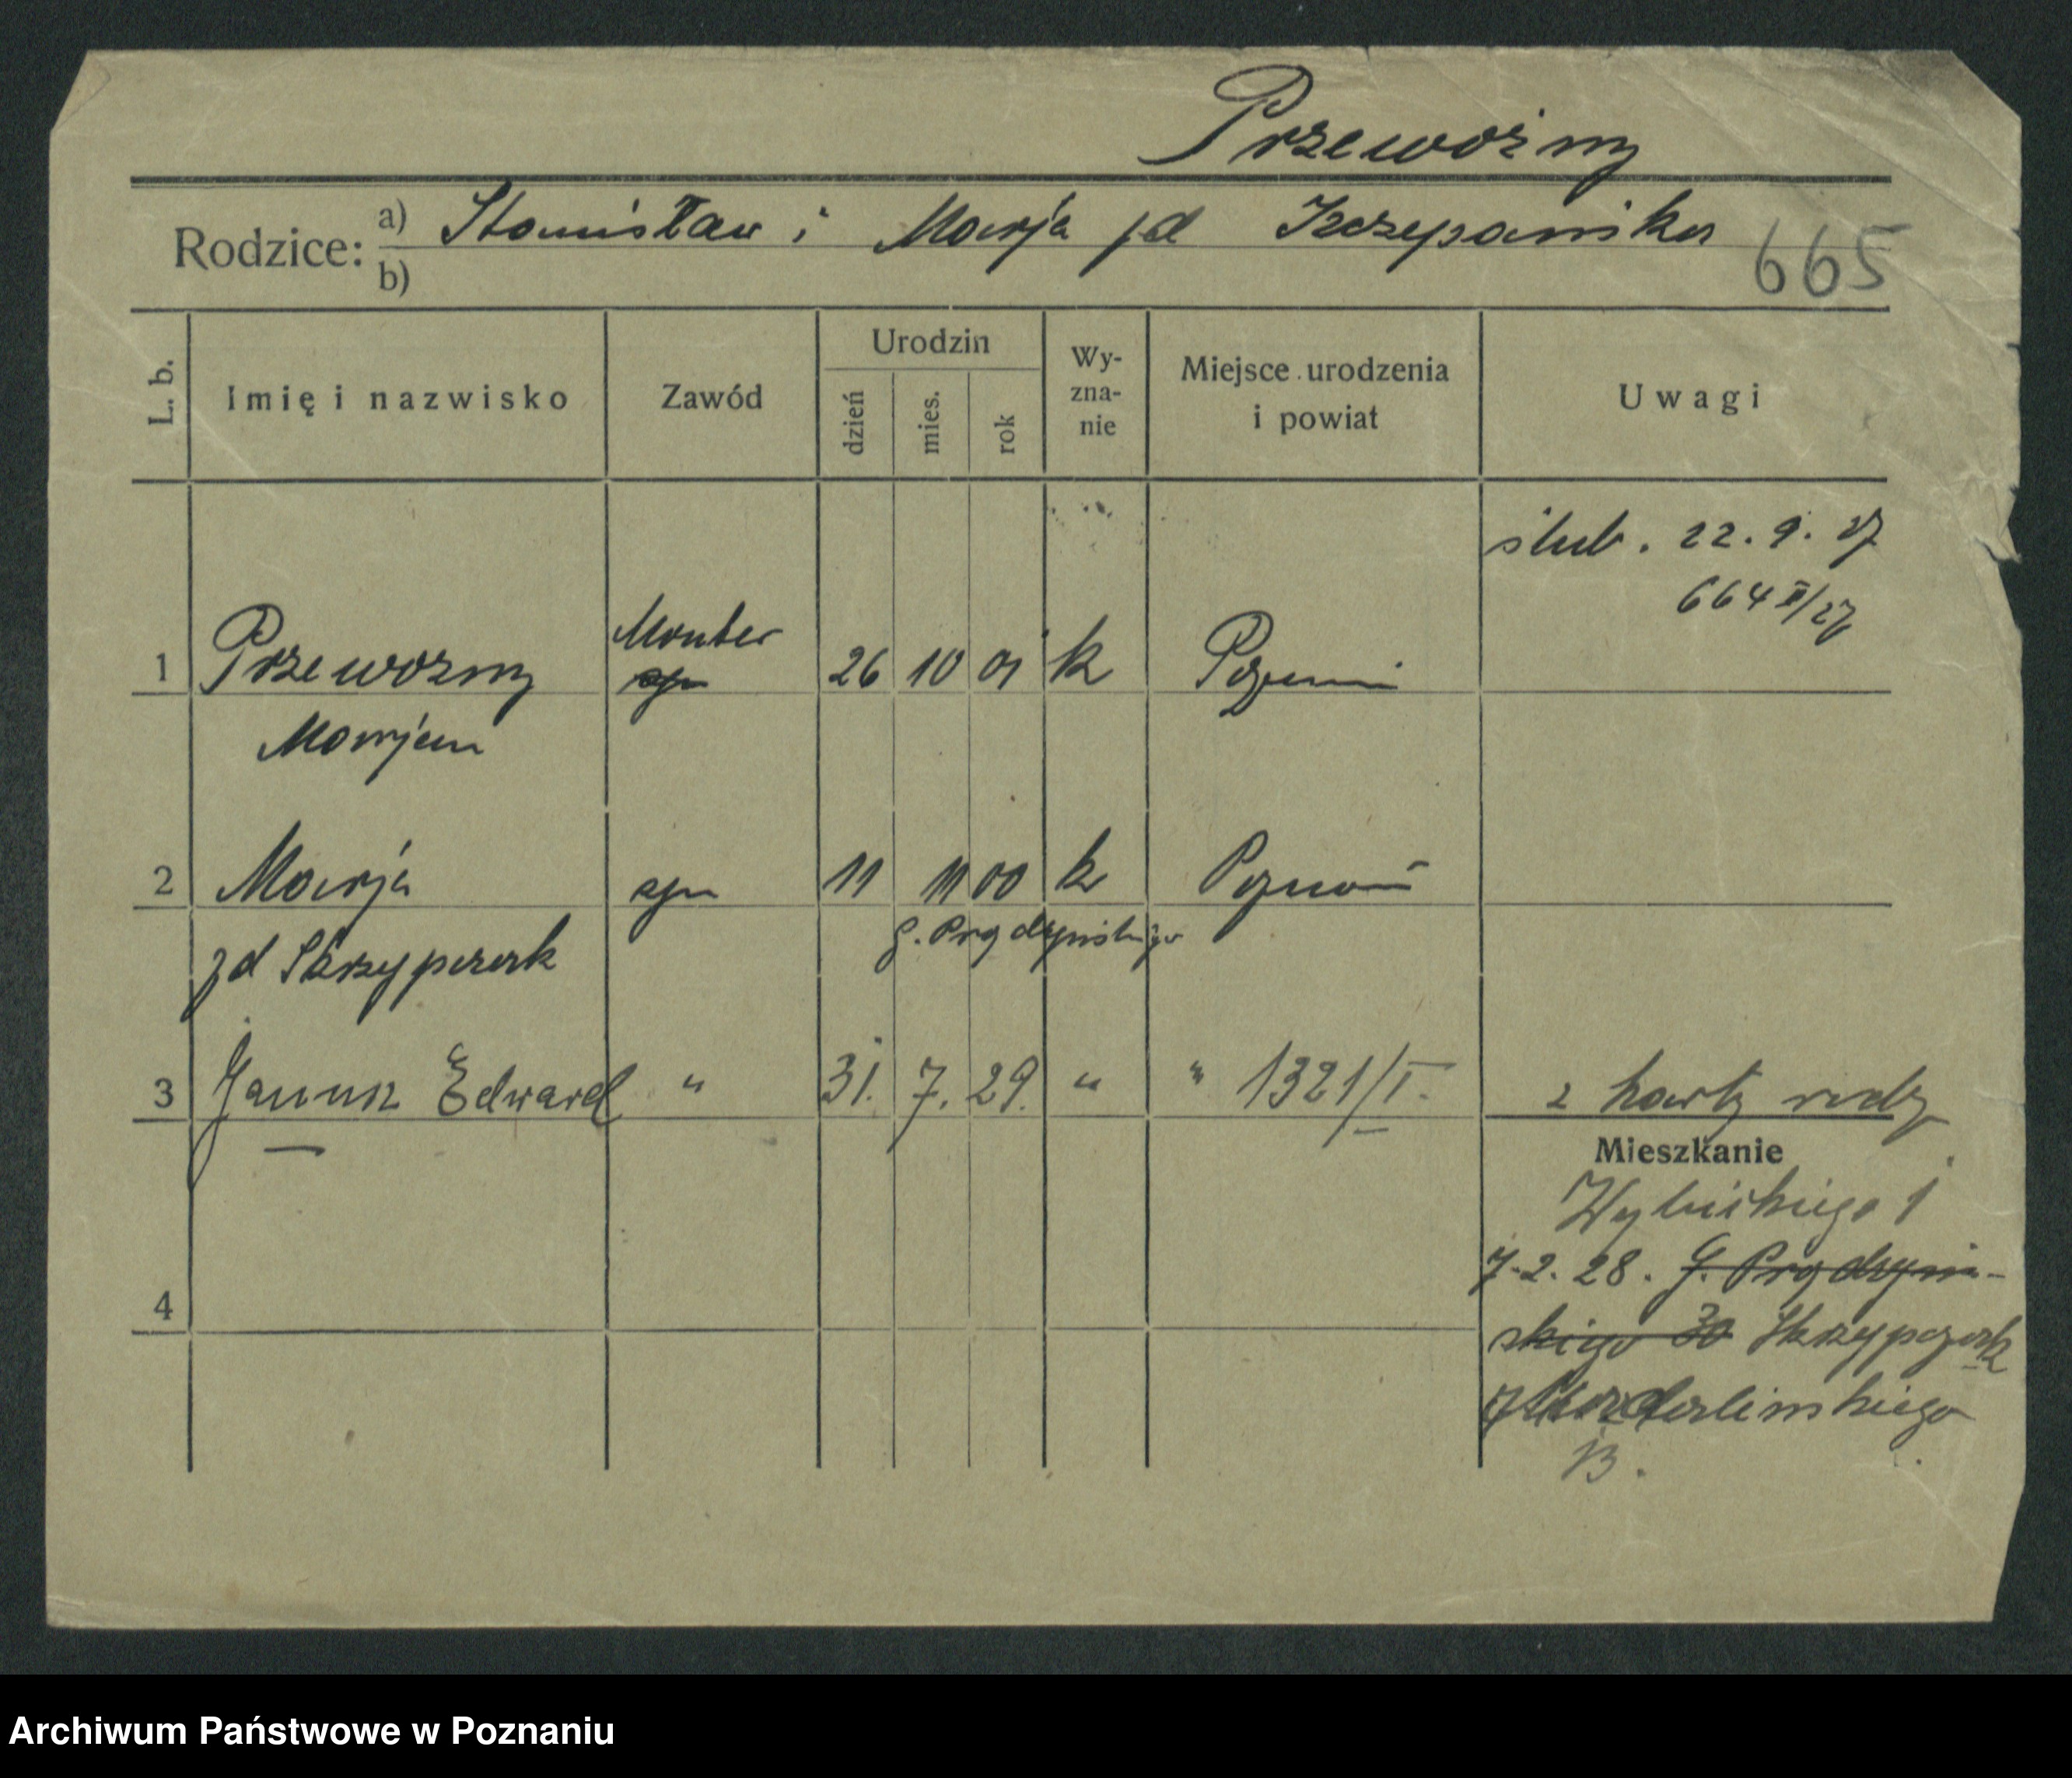 Przewoźny
Rodzice: a) Stanisław i Marja zd Szczepaniska
b)
665
L. b.
Imię i nazwisko
Zawód
Urodzin
dzień
mies.
rok
Wy-
zna-
nie
Miejsce urodzenia
i powiat
Uwagi
ślub. 22.9.27
664 II/27
1 Przewozny Monter 26 10 01 k Poznań
Marjan
2 Marja 11 11 00 k Poznań
G. Prądzyńskiego
zd Skrzypczak
3 Janusz Edward " 31. 7. 29. " " 1321/I.
2 karty rodz
Mieszkanie
Wybickiego 1
7.2.28. G. Prądzyń-
skiego 30 Skrzypczak
13.
4
Archiwum Państwowe w Poznaniu